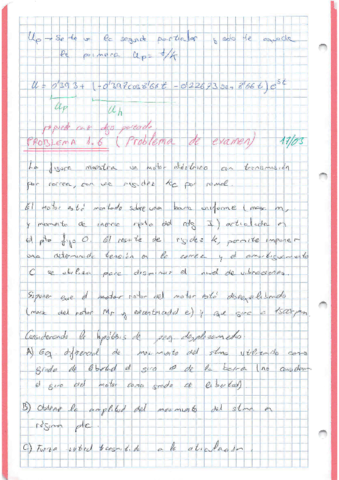 Up → Se te da la segunda particular y solo te acuerda
la primera Up = t/k
U = 0'2193 + (-0'2193cos8'66t - 0'22673 sen 8'66t) e
Up Uh
pequeño
PROBLEMA 1.6 (Problema de examen) 11/03
La figura muestra un motor eléctrico con transmisión
por correa, con una rigidez kc por ramal.
El motor está montado sobre una barra uniforme (masa m,
y momento de inercia I) articulada en
el pto = 0. El resorte de rigidez k, permite imponer
una determinada tensión a la correa y el amortiguamiento
C se utiliza para disminuir el nivel de vibraciones.
Suponer que el rotor del motor está desequilibrado
(masa del rotor Mr y excentricidad e) y que gira a
Considerando la hipótesis de peq desplazamientos
A) Eq diferencial de movimiento del stma utilizando como
grado de libertad el giro θ de la barra (no considerar
el giro del motor como grado de libertad)
B) Obtener la amplitud del movimiento del stma en
régimen pte
C) Fuerza vertical transmitida a la articulación.